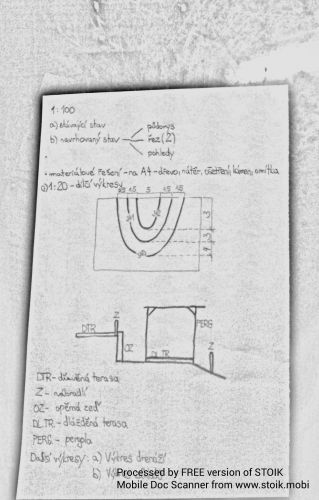 1:100
a) stávající stav
b) navrhovaný stav
půdorys
řez (2)
pohledy
• materiálové řešení - na A4 - dřevo, nátěr, ošetření, kámen, omítka
c) 1:20 - dílčí výkresy
1,5 1,5 5 1,5 1,5
3
3
4
DTR
Z
OZ
PERG
DL TR
Z
DTR - dřevěná terasa
Z - zábradlí
OZ - opěrná zeď
DL.TR - dlážděná terasa
PERG. - pergola
Další výkresy: a) Výkres drenáží
b)
Processed by FREE version of STOIK
Mobile Doc Scanner from www.stoik.mobi